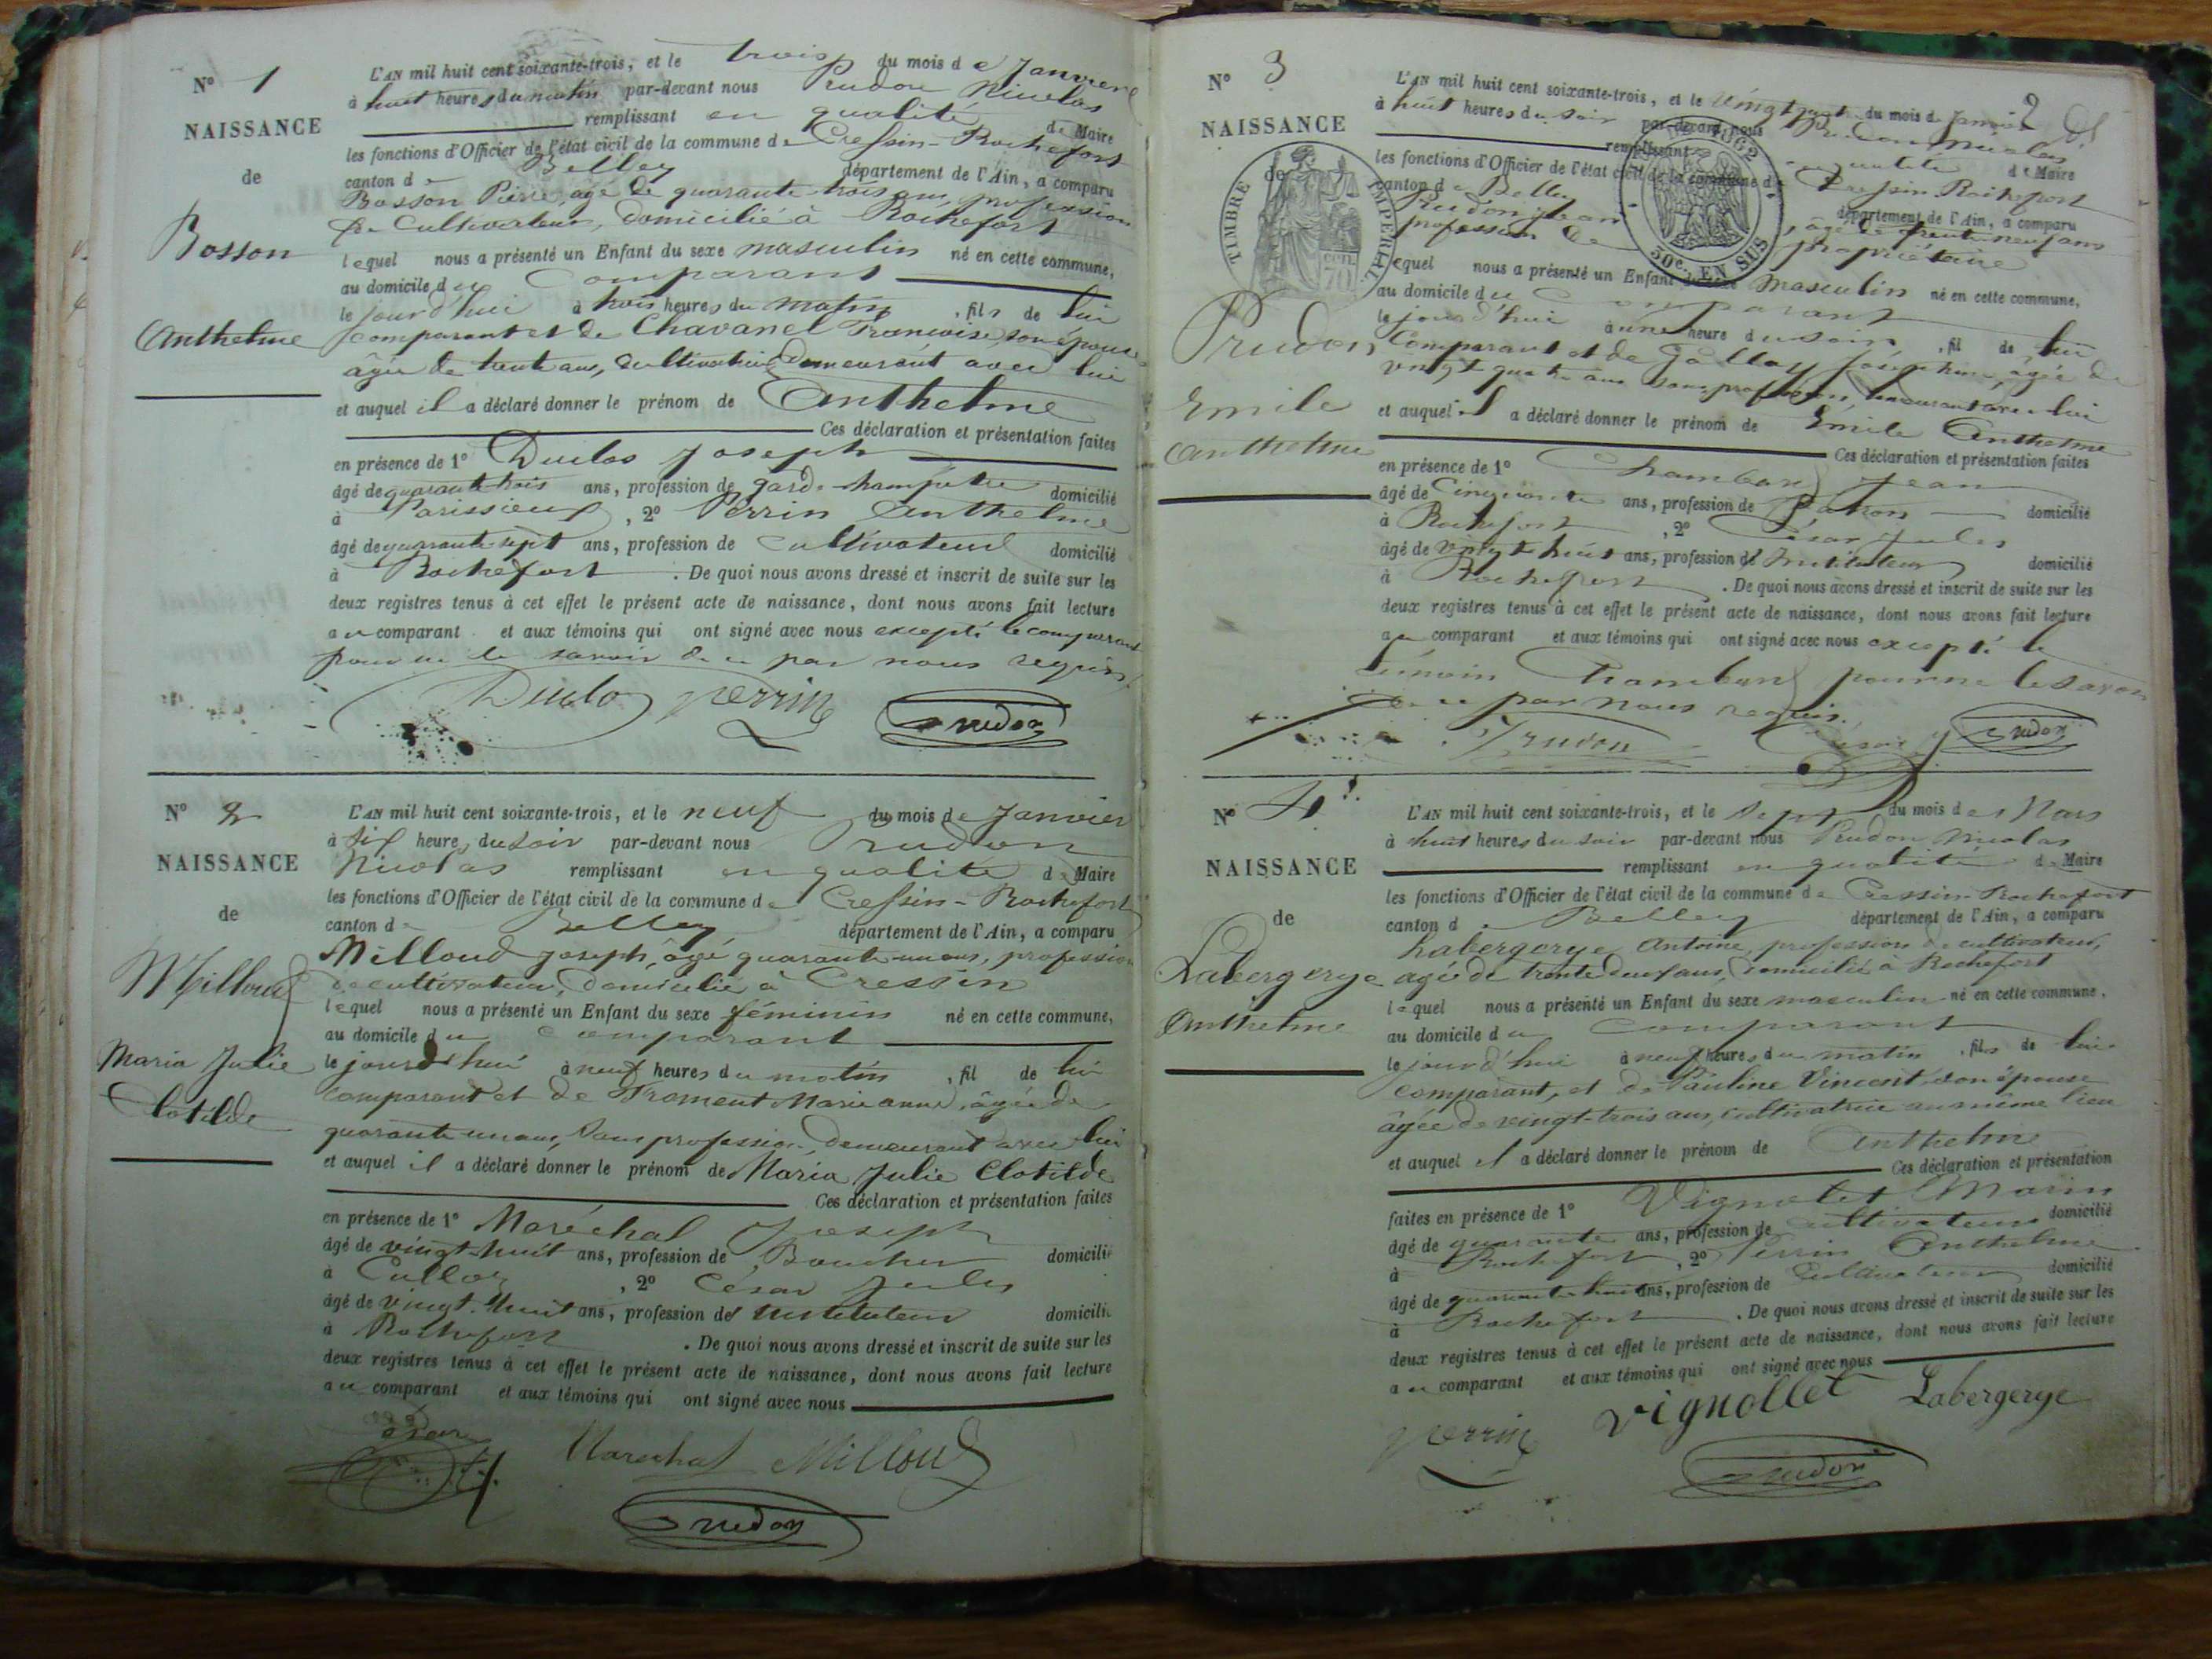 N° 1
NAISSANCE
de
Bosson
Anthelme
L'AN mil huit cent soixante-trois, et le trois du mois de Janvier
à huit heures du matin par-devant nous Prudon Nicolas
remplissant en qualité de Maire
les fonctions d'Officier de l'état civil de la commune de Cressin-Rochefort
canton de Belley département de l'Ain, a comparu
Bosson Pierre, âgé de quarante trois ans, profession
de Cultivateur, domicilié à Rochefort
lequel nous a présenté un Enfant du sexe masculin né en cette commune,
au domicile du Comparant
le jourd'hui à trois heures du matin, fils de lui
comparant et de Chavanel Francoise son épouse
âgée de trente ans, cultivatrice demeurant avec lui
et auquel il a déclaré donner le prénom de Anthelme
Ces déclaration et présentation faites
en présence de 1° Duclos Joseph
âgé de quarante trois ans, profession de garde-champêtre domicilié
à Parissieux, 2° Perrin Anthelme
âgé de quarante sept ans, profession de Cultivateur domicilié
à Rochefort. De quoi nous avons dressé et inscrit de suite sur les
deux registres tenus à cet effet le présent acte de naissance, dont nous avons fait lecture
au comparant et aux témoins qui ont signé avec nous excepté le comparant
pour ne le savoir de ce par nous requis
Duclos Perrin Prudon
N° 2
NAISSANCE
de
Milloud
Maria Julie
Clotilde
L'AN mil huit cent soixante-trois, et le neuf du mois de Janvier
à six heures du soir par-devant nous Prudon
Nicolas remplissant en qualité de Maire
les fonctions d'Officier de l'état civil de la commune de Cressin-Rochefort
canton de Belley département de l'Ain, a comparu
Milloud Joseph, âgé quarante un ans, profession
de cultivateur, domicilié à Cressin
lequel nous a présenté un Enfant du sexe féminin né en cette commune,
au domicile du comparant
le jourd'hui à neuf heures du matin, fil de lui
comparant et de Froment Marie anne, âgée de
quarante un ans, sans profession, demeurant avec lui
et auquel il a déclaré donner le prénom de Maria Julie Clotilde
Ces déclaration et présentation faites
en présence de 1° Maréchal Joseph
âgé de vingt-huit ans, profession de Boucher domicilié
à Culloz, 2° César Jules
âgé de vingt-huit ans, profession de instituteur domicilié
à Rochefort. De quoi nous avons dressé et inscrit de suite sur les
deux registres tenus à cet effet le présent acte de naissance, dont nous avons fait lecture
au comparant et aux témoins qui ont signé avec nous
César Maréchal Milloud
Prudon
2
N° 3
NAISSANCE
de
TIMBRE IMPERIAL
70
1862
50c. EN SUS
Prudon
Emile
Anthelme
L'AN mil huit cent soixante-trois, et le vingt du mois de Janvier
à huit heures du soir par-devant nous Prudon Nicolas
remplissant en qualité de Maire
les fonctions d'Officier de l'état civil de la commune de Cressin-Rochefort
canton de Belley département de l'Ain, a comparu
Prudon Jean, âgé de trente-neuf ans
profession de propriétaire
lequel nous a présenté un Enfant du sexe masculin né en cette commune,
au domicile du Comparant
le jourd'hui à une heure du soir, fil de lui
Comparant et de Gallay Joséphine, agée de
vingt quatre ans sans profession, demeurant avec lui
et auquel il a déclaré donner le prénom de Emile Anthelme
Ces déclaration et présentation faites
en présence de 1° Chamband Jean
âgé de Cinquante ans, profession de Patron domicilié
à Rochefort, 2° César Jules
âgé de vingt huit ans, profession de Instituteur domicilié
à Rochefort. De quoi nous avons dressé et inscrit de suite sur les
deux registres tenus à cet effet le présent acte de naissance, dont nous avons fait lecture
au comparant et aux témoins qui ont signé avec nous excepté le
témoin Chamband pour ne le savoir
de ce par nous requis.
Prudon César Prudon
N° 4
NAISSANCE
de
Labergerye
Anthelme
L'AN mil huit cent soixante-trois, et le Sept du mois de Mars
à huit heures du soir par-devant nous Prudon Nicolas
remplissant en qualité de Maire
les fonctions d'Officier de l'état civil de la commune de Cressin-Rochefort
canton de Belley département de l'Ain, a comparu
Labergerye Antoine, profession de cultivateur,
agée de trente deux ans, domicilié à Rochefort
lequel nous a présenté un Enfant du sexe masculin né en cette commune,
au domicile du comparant
le jourd'hui à neuf heures du matin, fils de lui
comparant, et de Pauline Vincent son épouse
âgée de vingt-trois ans, cultivatrice au même lieu
et auquel il a déclaré donner le prénom de Anthelme
Ces déclaration et présentation
faites en présence de 1° Vignolet Marin
âgé de quarante ans, profession de cultivateur domicilié
à Rochefort, 2° Perrin Anthelme
âgé de quarante huit ans, profession de Cultivateur domicilié
à Rochefort. De quoi nous avons dressé et inscrit de suite sur les
deux registres tenus à cet effet le présent acte de naissance, dont nous avons fait lecture
au comparant et aux témoins qui ont signé avec nous
Perrin Vignollet Labergerye
Prudon